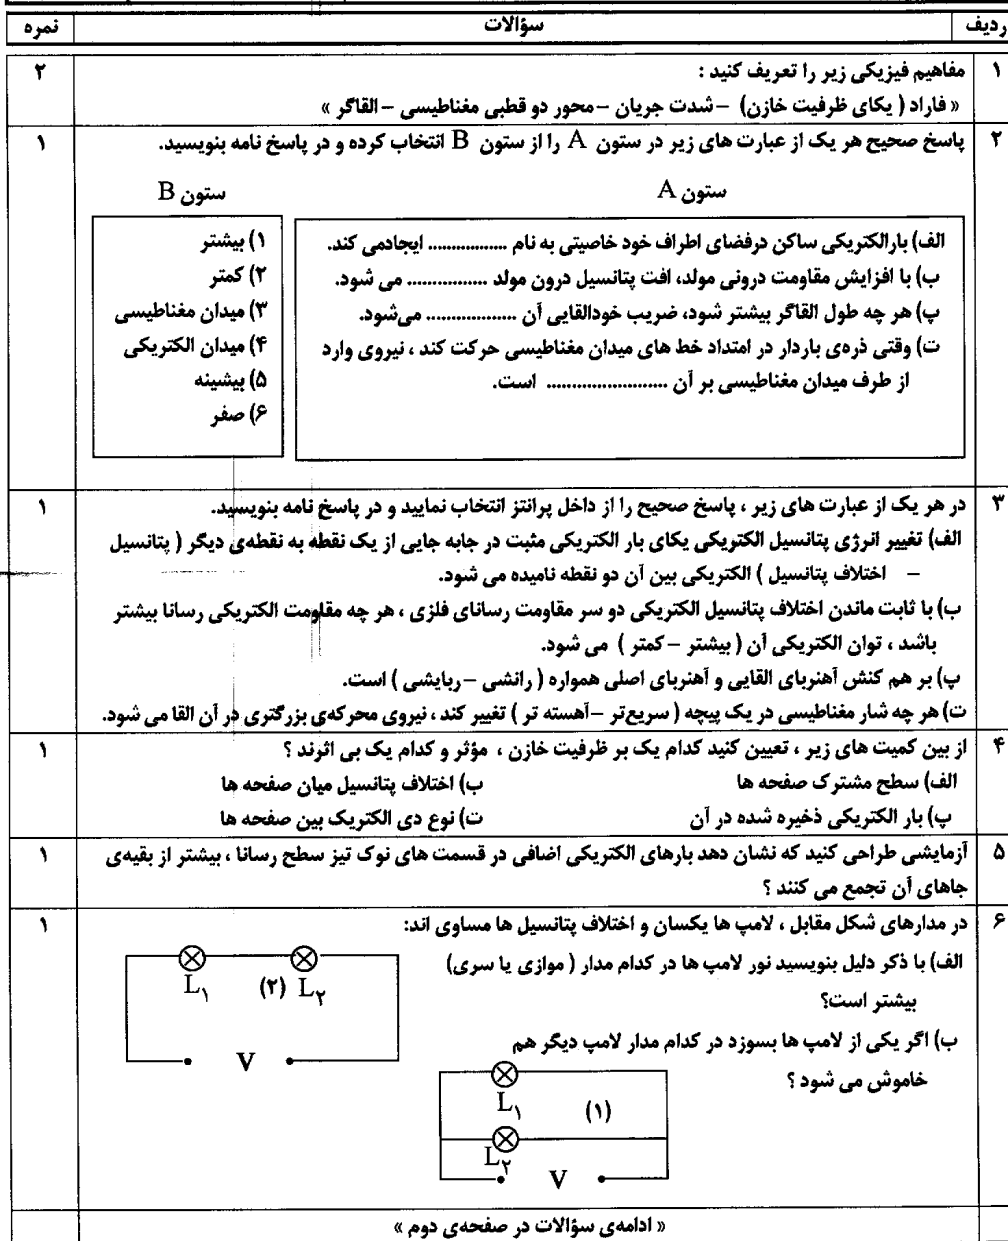 ردیف سؤالات نمره
۱ مفاهیم فیزیکی زیر را تعریف کنید : ۲
« فاراد ( یکای ظرفیت خازن) – شدت جریان – محور دو قطبی مغناطیسی – القاگر »
۲ پاسخ صحیح هر یک از عبارت های زیر در ستون A را از ستون B انتخاب کرده و در پاسخ نامه بنویسید. ۱
ستون A ستون B
الف) بارالکتریکی ساکن درفضای اطراف خود خاصیتی به نام ................. ایجادمی کند.
ب) با افزایش مقاومت درونی مولد، افت پتانسیل درون مولد ................. می شود.
پ) هر چه طول القاگر بیشتر شود، ضریب خودالقایی آن ................... می‌شود.
ت) وقتی ذره‌ی باردار در امتداد خط های میدان مغناطیسی حرکت کند ، نیروی وارد
از طرف میدان مغناطیسی بر آن ......................... است.
۱) بیشتر
۲) کمتر
۳) میدان مغناطیسی
۴) میدان الکتریکی
۵) بیشینه
۶) صفر
۳ در هر یک از عبارت های زیر ، پاسخ صحیح را از داخل پرانتز انتخاب نمایید و در پاسخ نامه بنویسید. ۱
الف) تغییر انرژی پتانسیل الکتریکی یکای بار الکتریکی مثبت در جابه جایی از یک نقطه به نقطه‌ی دیگر ( پتانسیل
– اختلاف پتانسیل ) الکتریکی بین آن دو نقطه نامیده می شود.
ب) با ثابت ماندن اختلاف پتانسیل الکتریکی دو سر مقاومت رسانای فلزی ، هر چه مقاومت الکتریکی رسانا بیشتر
باشد ، توان الکتریکی آن ( بیشتر – کمتر ) می شود.
پ) بر هم کنش آهنربای القایی و آهنربای اصلی همواره ( رانشی – ربایشی ) است.
ت) هر چه شار مغناطیسی در یک پیچه ( سریع‌تر – آهسته تر ) تغییر کند ، نیروی محرکه‌ی بزرگتری در آن القا می شود.
۴ از بین کمیت های زیر ، تعیین کنید کدام یک بر ظرفیت خازن ، مؤثر و کدام یک بی اثرند ؟ ۱
الف) سطح مشترک صفحه ها ب) اختلاف پتانسیل میان صفحه ها
پ) بار الکتریکی ذخیره شده در آن ت) نوع دی الکتریک بین صفحه ها
۵ آزمایشی طراحی کنید که نشان دهد بارهای الکتریکی اضافی در قسمت های نوک تیز سطح رسانا ، بیشتر از بقیه‌ی ۱
جاهای آن تجمع می کنند ؟
۶ در مدارهای شکل مقابل ، لامپ ها یکسان و اختلاف پتانسیل ها مساوی اند: ۱
الف) با ذکر دلیل بنویسید نور لامپ ها در کدام مدار ( موازی یا سری)
بیشتر است؟
ب) اگر یکی از لامپ ها بسوزد در کدام مدار لامپ دیگر هم
خاموش می شود ؟
L۱ (۲) L۲
V
L۱ (۱)
L۲
V
« ادامه‌ی سؤالات در صفحه‌ی دوم »